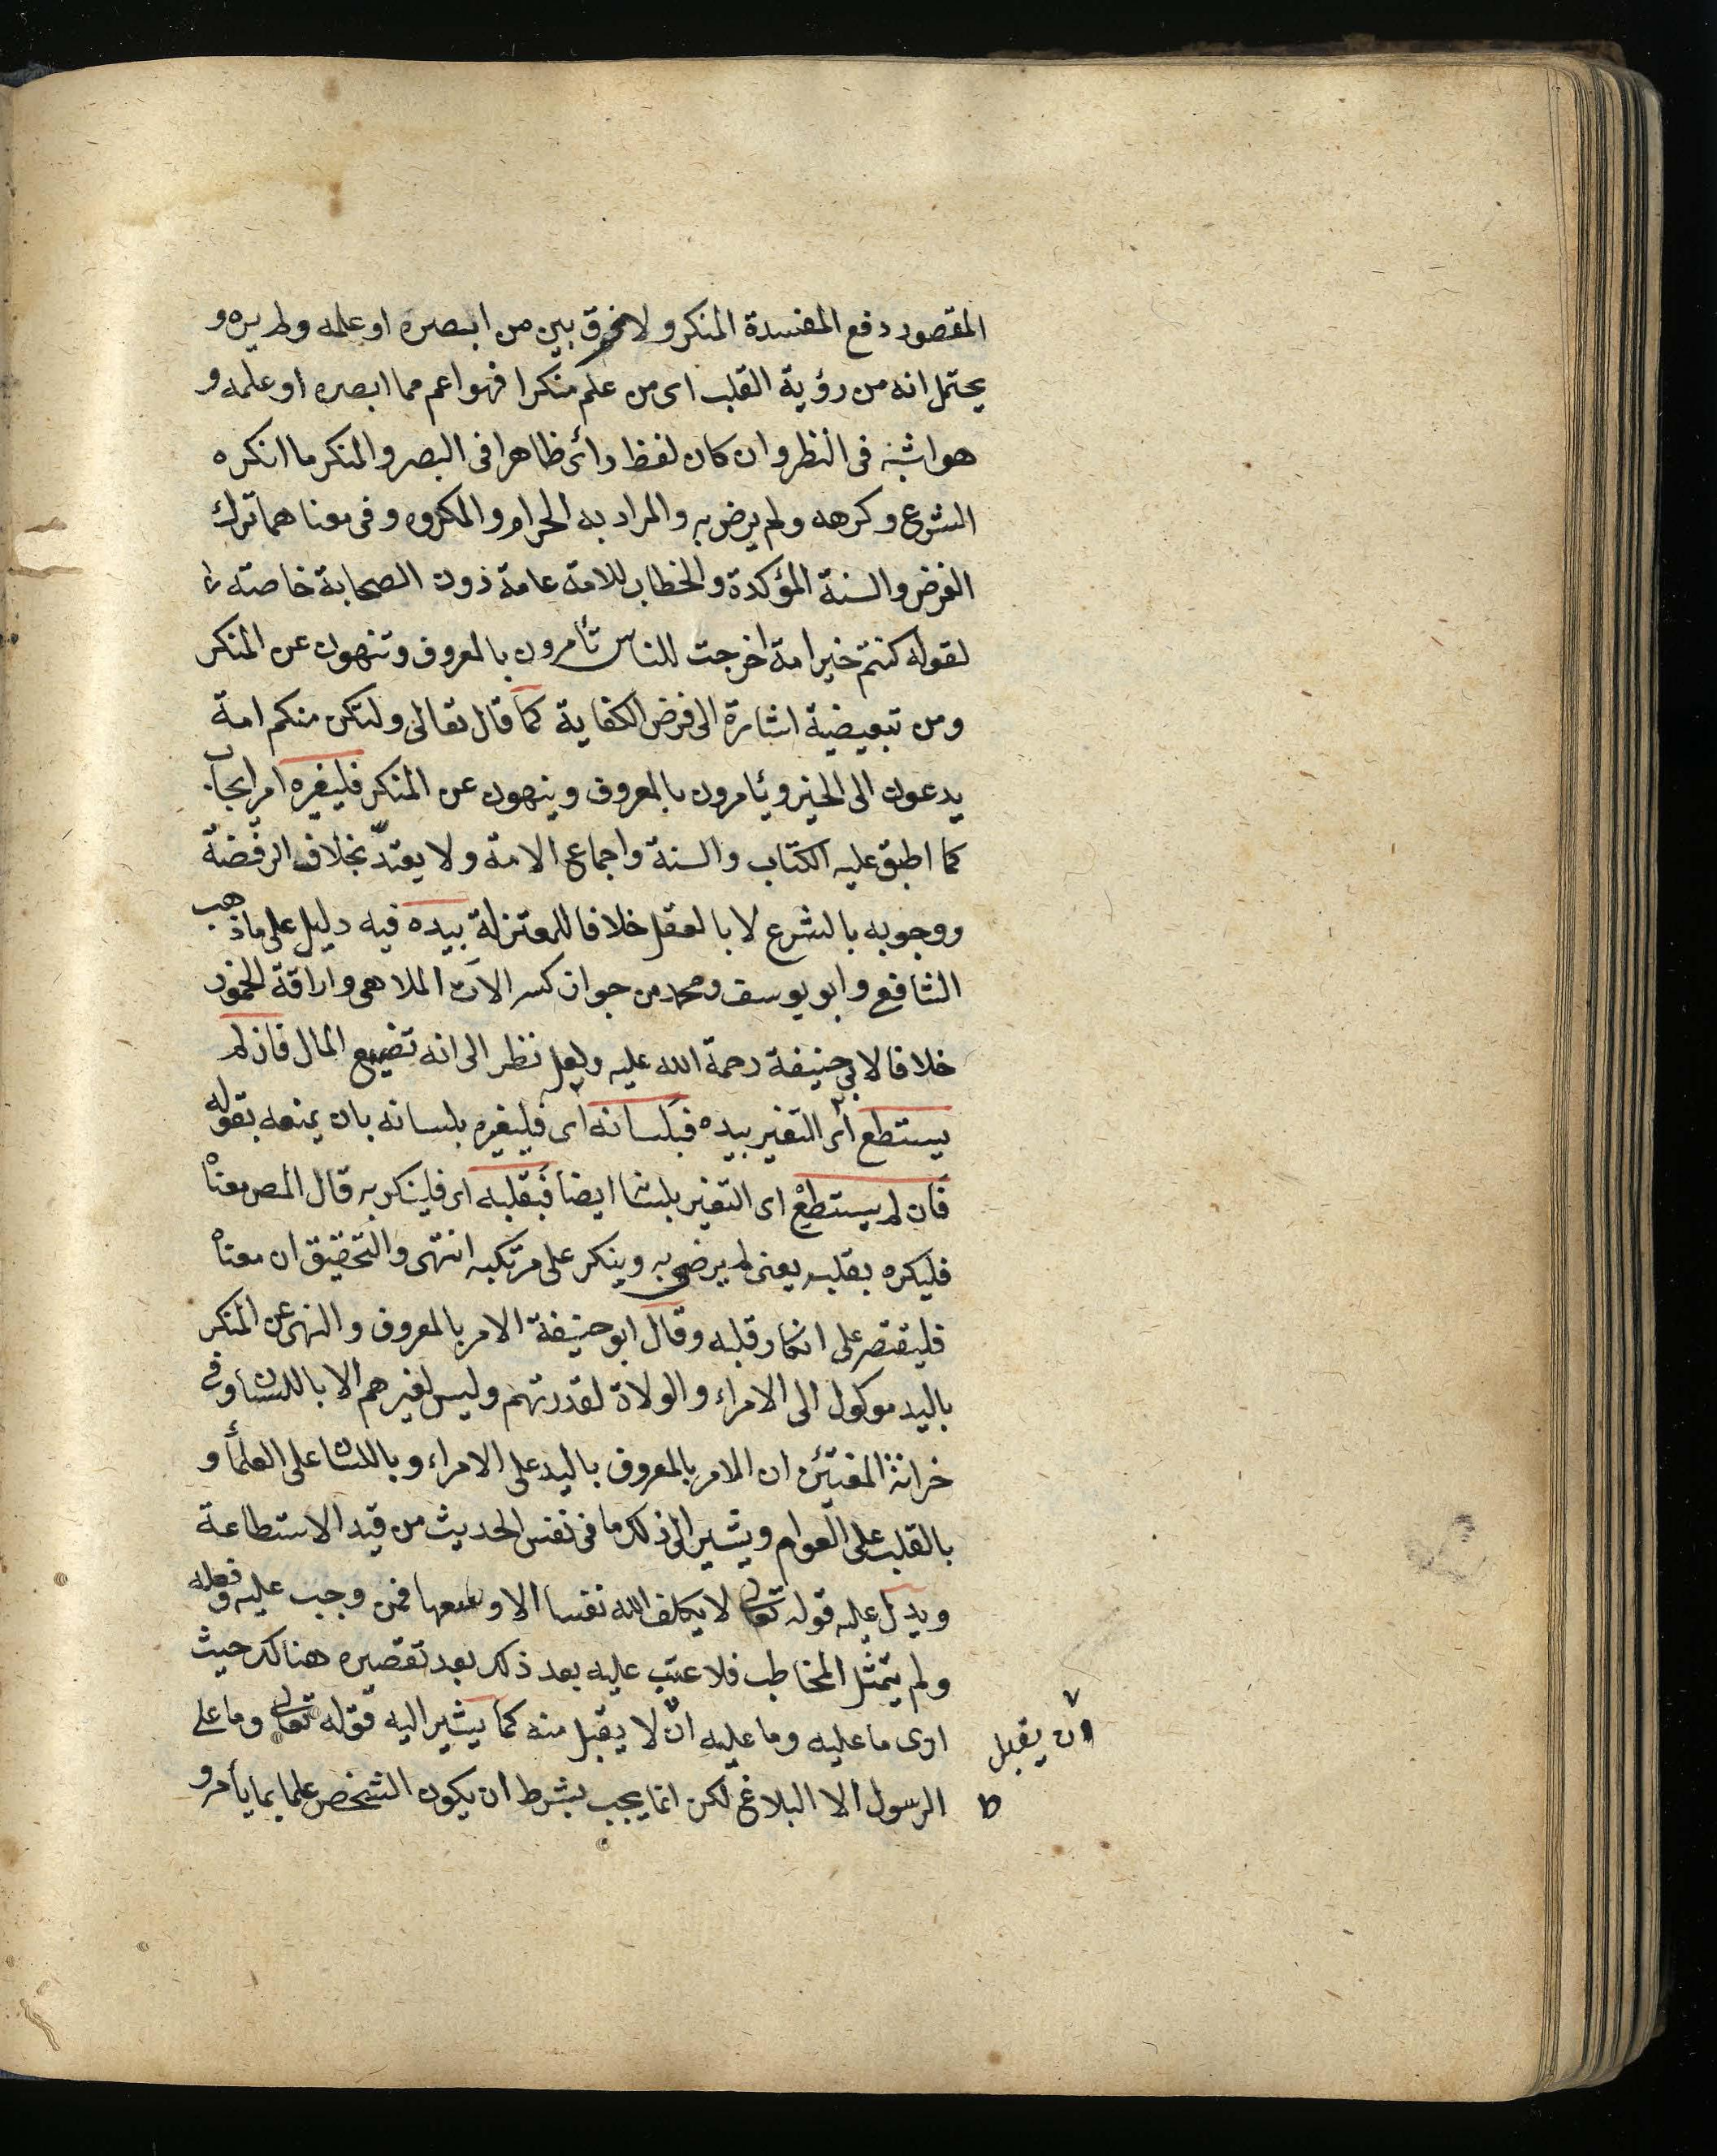 المقصود دفع المفسدة المنكر ولا فرق بين من ابصره او علمه ولم يره و
يحتمل انه من رؤية القلب اى من علم منكرا فهو اعم مما ابصره او علمه و
هو اشبه فى النظر وان كان لفظ رأى ظاهرا فى البصر والمنكر ما انكره
الشرع وكرهه ولم يرض به والمراد به الحرام والمكروه وفى معناهما ترك
الفرض والسنة المؤكدة والخطاب للامة عامة دون الصحابة خاصته
لقوله كنتم خير امة اخرجت للناس تأمرون بالمعروف وتنهون عن المنكر
ومن تبعيضية اشارة الى فرض الكفاية كما قال تعالى ولتكن منكم امة
يدعون الى الخير ويأمرون بالمعروف وينهون عن المنكر فليغيره امر ايجاب
كما اطبق عليه الكتاب والسنة واجماع الامة ولا يعتدّ بخلاف الرفضة
ووجوبه بالشرع لا بالعقل خلافا للمعتزلة بيده فيه دليل على ما ذهب
الشافع وابو يوسف ومحمد من جواز كسر الآت الملاهى واراقة الخمور
خلافا لابي حنيفة رحمة الله عليه ولعل نظر الى انه تضييع المال فان لم
يستطع أى التغير بيده فبلسانه اى فليغيره بلسانه بان يمنعه بقوله
فان لم يستطع اى التغير بلسانه ايضا فبقلبه اى فلينكر به قال المص معناه
فليكره بقلبه يعنى لم يرضى به وينكر على مرتكبه انتهى والتحقيق ان معناه
فليقتصر على انكار قلبه وقال ابو حنيفة الامر بالمعروف والنهى عن المنكر
باليد موكول الى الامراء والولاة لقدرتهم وليس لغيرهم الا باللسان وفى
خزانة المفتئين ان الامر بالمعروف باليد على الامراء وباللسان على العلمأ و
بالقلب على العوام ويشير الى ذلك ما فى نفس الحديث من قيد الاستطاعة
ويدل عليه قوله تعالى لا يكلف الله نفسا الا وسعها فمن وجب عليه وفعله
ولم يتمثل المخاطب فلا عتب عليه بعد ذلك بعد تقصيره هنالك حيث
ادى ما عليه وما عليه ان لا يقبل منه كما يشير اليه قوله تعالى وما على
ان يقبل
الرسول الا البلاغ لكن انما يجب بشرط ان يكون الشخص علما بما يأمر و